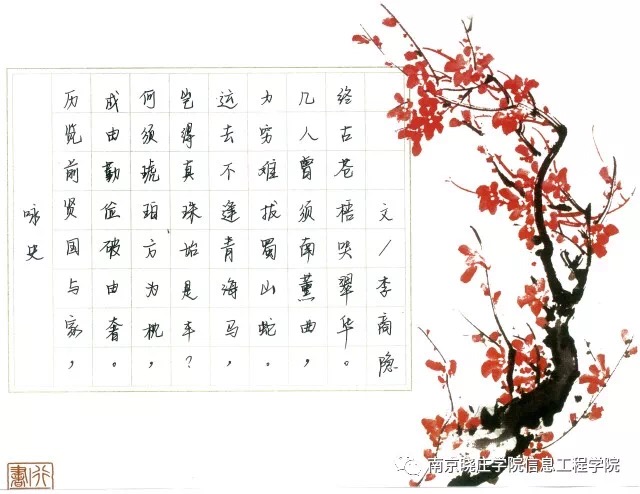 咏史
历览前贤国与家，
成由勤俭破由奢。
何须琥珀方为枕，
岂得真珠始是车？
运去不逢青海马，
力穷难拔蜀山蛇。
几人曾须南薰曲，
终古苍梧哭翠华。
文/李商隐
行書
南京晓庄学院信息工程学院